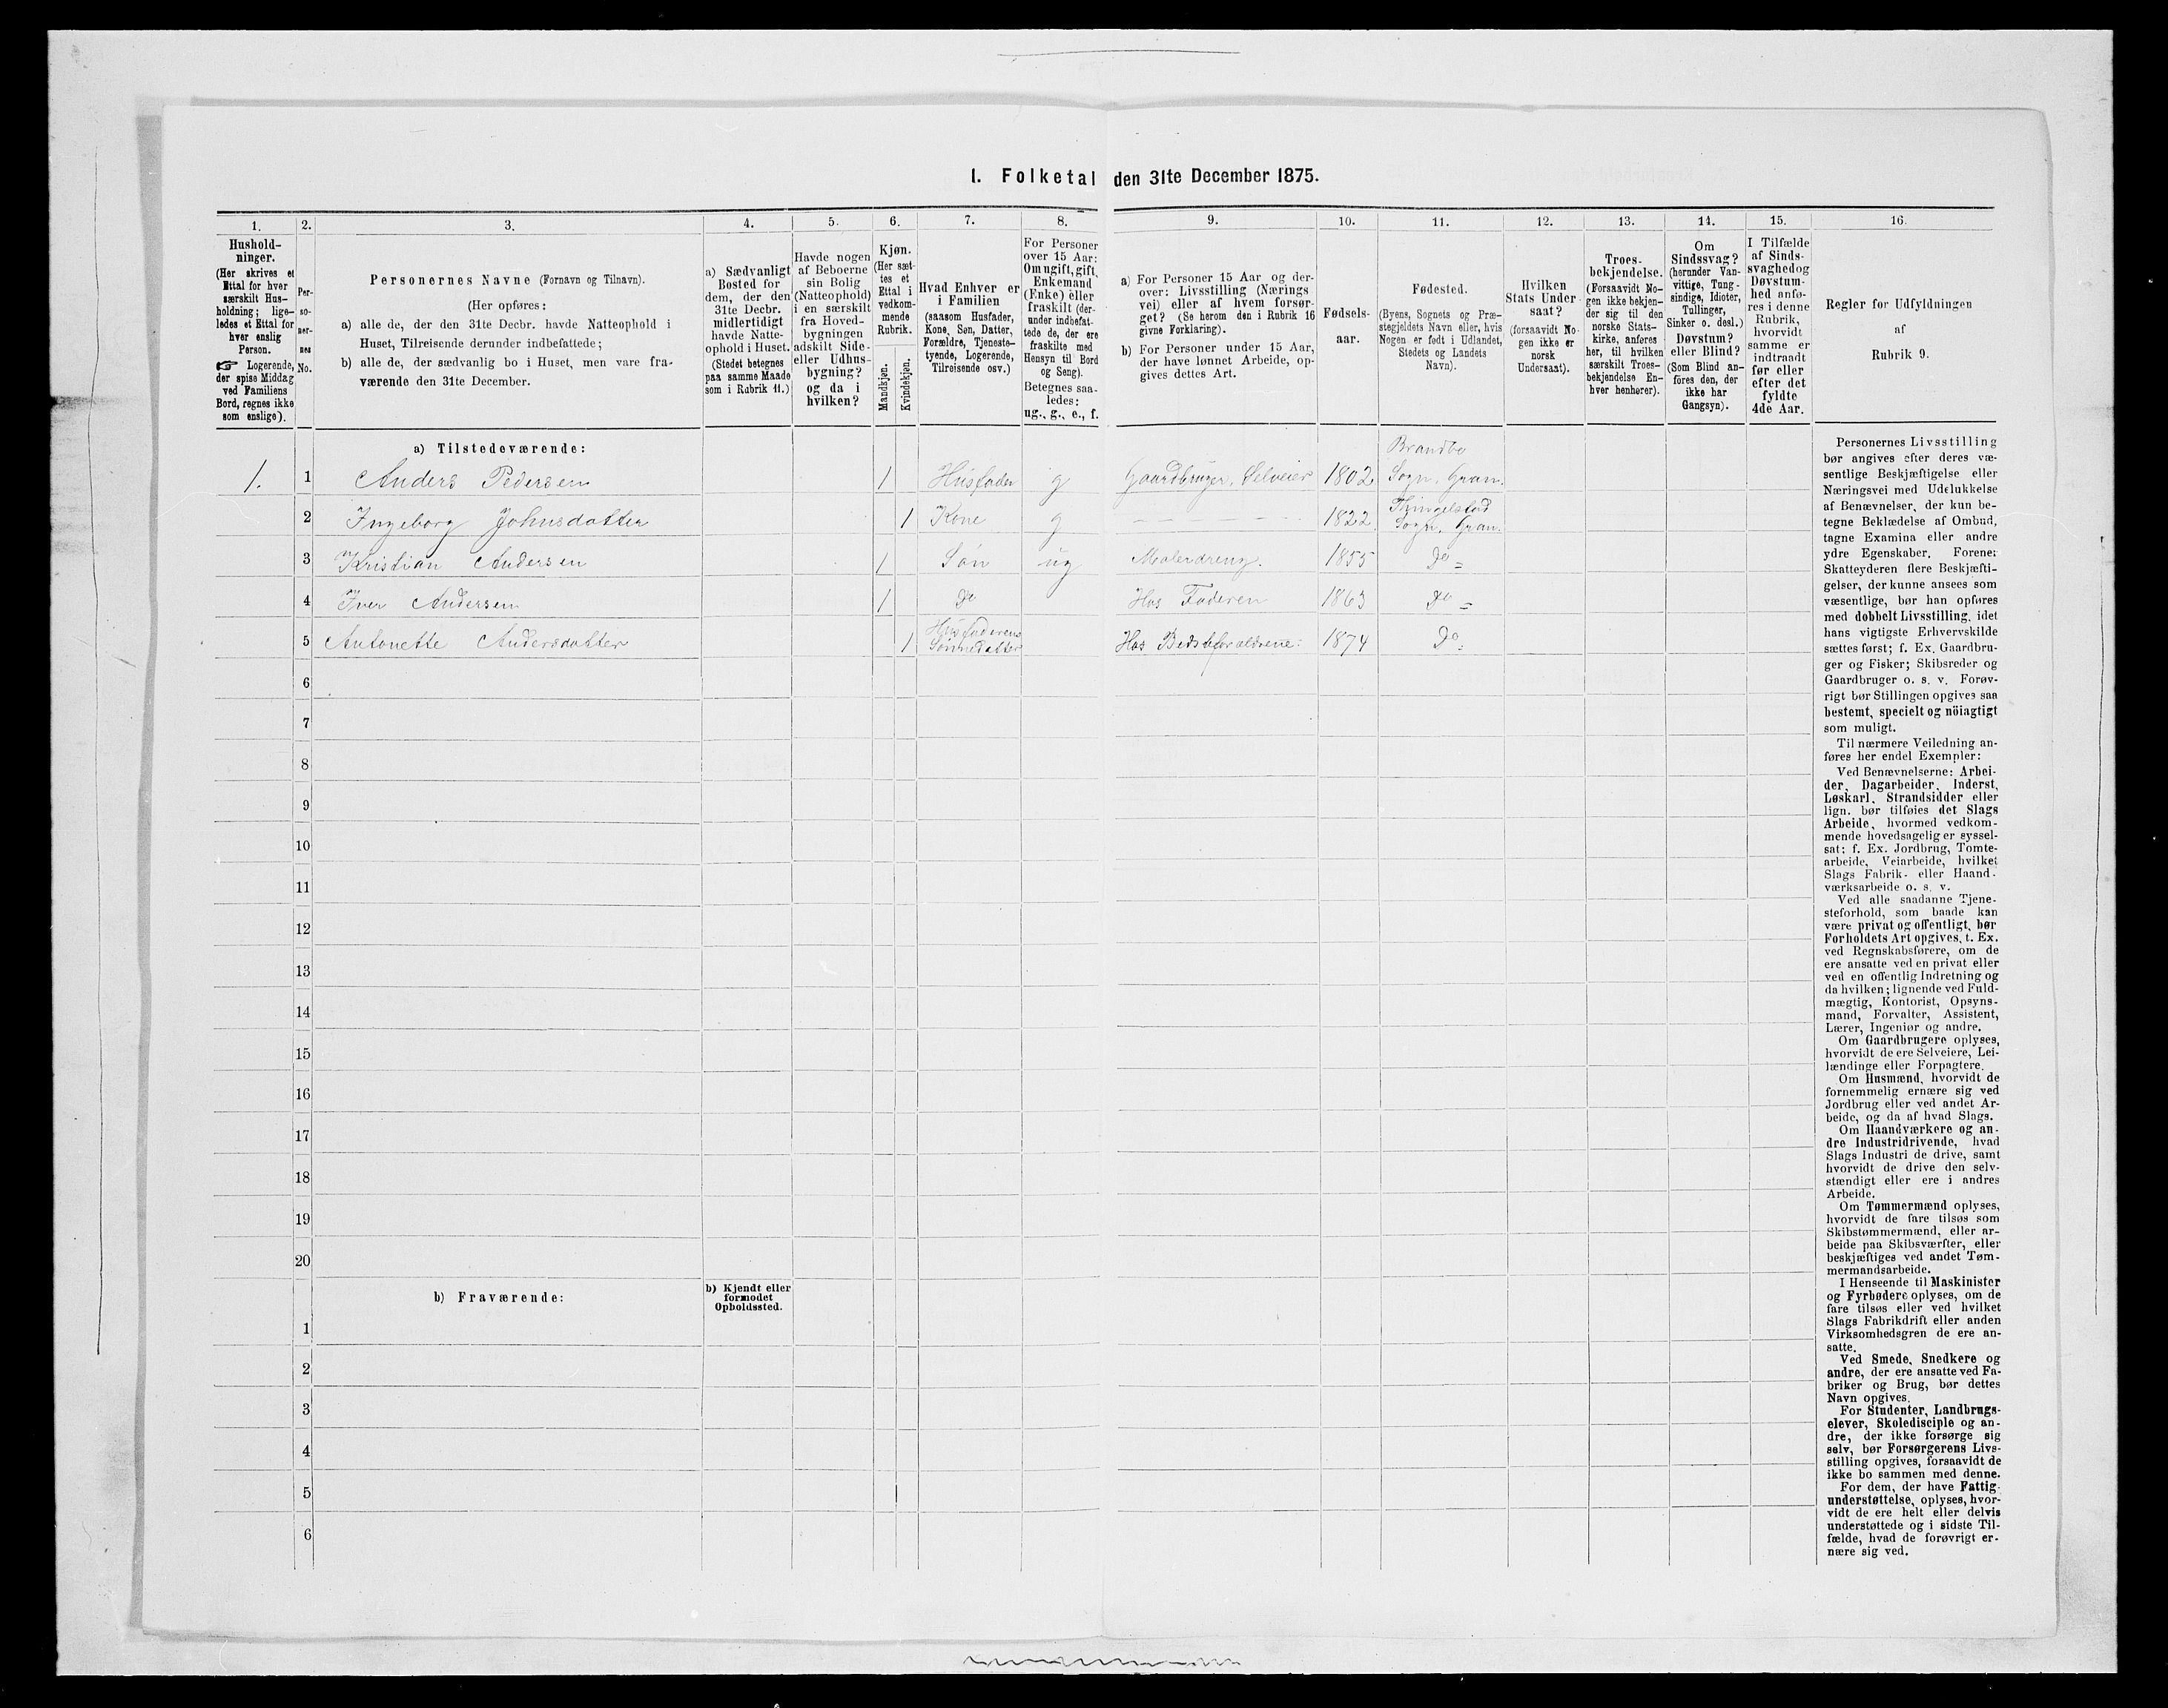 1. Folketal den 31te December 1875.
1.
2.
3.
4.
5.
6.
7.
8.
9.
10.
11.
12.
13.
14.
15.
16.
Hushold-
ninger.
(Her skrives et
Ettal for hver
særskilt Hus-
holdning; lige-
ledes et Ettal for
hver enslig
Person.
☞ Logerende,
der spise Middag
ved Familiens
Bord, regnes ikke
som enslige).
Per-
so-
ner-
nes
No.
Personernes Navne (Fornavn og Tilnavn).
(Her opføres:
a) alle de, der den 31te Decbr. havde Natteophold i
Huset, Tilreisende derunder indbefattede;
b) alle de, der sædvanlig bo i Huset, men vare fra-
værende den 31te December.
a) Sædvanligt
Bosted for
dem, der den
31te Decbr.
midlertidigt
havde Natte-
ophold i Huset.
(Stedet betegnes
paa samme Maade
som i Rubrik 11.)
Havde nogen
af Beboerne
sin Bolig
(Natteophold)
i en særskilt
fra Hoved-
bygningen
adskilt Side-
eller Udhus-
bygning?
og da i
hvilken?
Kjøn.
(Her sæt-
tes et
Ettal i
vedkom-
mende
Rubrik.
Mandkjøn.
Kvindekjøn.
Hvad Enhver er
i Familien
(saasom Husfader,
Kone, Søn, Datter,
Forældre, Tjeneste-
tyende, Logerende,
Tilreisende osv.)
For Personer
over 15 Aar:
Om ugift, gift,
Enkemand
(Enke) eller
fraskilt (der-
under indbefat-
tede de, der ere
fraskilte med
Hensyn til Bord
og Seng).
Betegnes saa-
ledes:
ug., g., e., f.
a) For Personer 15 Aar og der-
over: Livsstilling (Nærings
vei) eller af hvem forsør-
get? (Se herom den i Rubrik 16
givne Forklaring).
b) For Personer under 15 Aar,
der have lønnet Arbeide, op-
gives dettes Art.
Fødsels-
aar.
Fødested.
(Byens, Sognets og Præ-
stegjeldets Navn eller, hvis
Nogen er født i Udlandet,
Stedets og Landets
Navn).
Hvilken
Stats Under-
saat?
(forsaavidt No-
gen ikke er
norsk
Undersaat).
Troes-
bekjendelse.
(Forsaavidt No-
gen ikke bekjen-
der sig til den
norske Stats-
kirke, anføres
her, til hvilken
særskilt Troes-
bekjendelse En-
hver henhører).
Om
Sindssvag?
(herunder Van-
vittige, Tung-
sindige, Idioter,
Tullinger,
Sinker o. desl.)
Døvstum?
eller Blind?
(Som Blind an-
føres den, der
ikke har
Gangsyn).
I Tilfælde
af Sinds-
svaghed og
Døvstum-
hed anfø-
res i denne
Rubrik,
hvorvidt
samme er
indtraadt
før eller
efter det
fyldte
4de Aar.
Regler for Udfyldningen
af
Rubrik 9.
a) Tilstedeværende:
1. 1 Anders Pedersen 1 Husfader g Gaardbruger, Selveier 1802 Brandbo
Sogn, Gran.
2 Ingeborg Johnsdatter 1 Kone g - - - - - 1822 Tingelstad
Sogn, Gran.
3 Kristian Andersen 1 Søn ug Malerdreng. 1855 Do =
4 Iver Andersen 1 Do Hos Faderen 1863 Do =
5 Antonette Andersdatter 1 Husfaderens
Sønnedatter Hos Bedsteforældrene: 1874 Do =
6
7
8
9
10
11
12
13
14
15
16
17
18
19
20
b) Fraværende:
b) Kjendt eller
formodet
Opholdssted.
1
2
3
4
5
6
Personernes Livsstilling
bør angives efter deres væ-
sentlige Beskjæftigelse eller
Næringsvei med Udelukkelse
af Benævnelser, der kun be-
tegne Beklædelse af Ombud,
tagne Examina eller andre
ydre Egenskaber. Forener
Skatteyderen flere Beskjæfti-
gelser, der kunne ansees som
væsentlige, bør han opføres
med dobbelt Livsstilling, idet
hans vigtigste Erhvervskilde
sættes først; f. Ex. Gaardbru-
ger og Fisker; Skibsreder og
Gaardbruger o. s. v. Forøv-
rigt bør Stillingen opgives saa
bestemt, specielt og nöiagtigt
som muligt.
Til nærmere Veiledning an-
føres her endel Exempler:
Ved Benævnelserne: Arbei-
der, Dagarbeider, Inderst,
Løskarl, Strandsidder eller
lign. bør tilføies det Slags
Arbeide, hvormed vedkom-
mende hovedsagelig er syssel-
sat; f. Ex. Jordbrug, Tomte-
arbeide, Veiarbeide, hvilket
Slags Fabrik- eller Haand-
værksarbeide o. s. v.
Ved alle saadanne Tjene-
steforhold, som baade kan
være privat og offentligt, bør
Forholdets Art opgives, t. Ex.
ved Regnskabsførere, om de
ere ansatte ved en privat eller
ved en offentlig Indretning og
da hvilken; lignende ved Fuld-
mægtig, Kontorist, Opsyns-
mand, Forvalter, Assistent,
Lærer, Ingeniør og andre.
Om Gaardbrugere oplyses,
hvorvidt de ere Selveiere, Lei-
lændinge eller Forpagtere.
Om Husmænd, hvorvidt de
fornemmelig ernære sig ved
Jordbrug eller ved andet Ar-
beide, og da af hvad Slags.
Om Haandværkere og an-
dre Industridrivende, hvad
Slags Industri de drive, samt
hvorvidt de drive den selv-
stændigt eller ere i andres
Arbeide.
Om Tømmermænd oplyses,
hvorvidt de fare tilsøs som
Skibstømmermænd, eller ar-
beide paa Skibsværfter, eller
beskjæftiges ved andet Tøm-
mermandsarbeide.
I Henseende til Maskinister
og Fyrbødere oplyses, om de
fare tilsøs eller ved hvilket
Slags Fabrikdrift eller anden
Virksomhedsgren de ere an-
satte.
Ved Smede, Snedkere og
andre, der ere ansatte ved Fa-
briker og Brug, bør dettes
Navn opgives.
For Studenter, Landbrugs-
elever, Skoledisciple og an-
dre, der ikke forsørge sig
selv, bør Forsørgerens Livs-
stilling opgives, forsaavidt de
ikke bo sammen med denne.
For dem, der have Fattig-
understøttelse, oplyses, hvor-
vidt de ere helt eller delvis
understøttede og i sidste Til-
fælde, hvad de forøvrigt er-
nære sig ved.